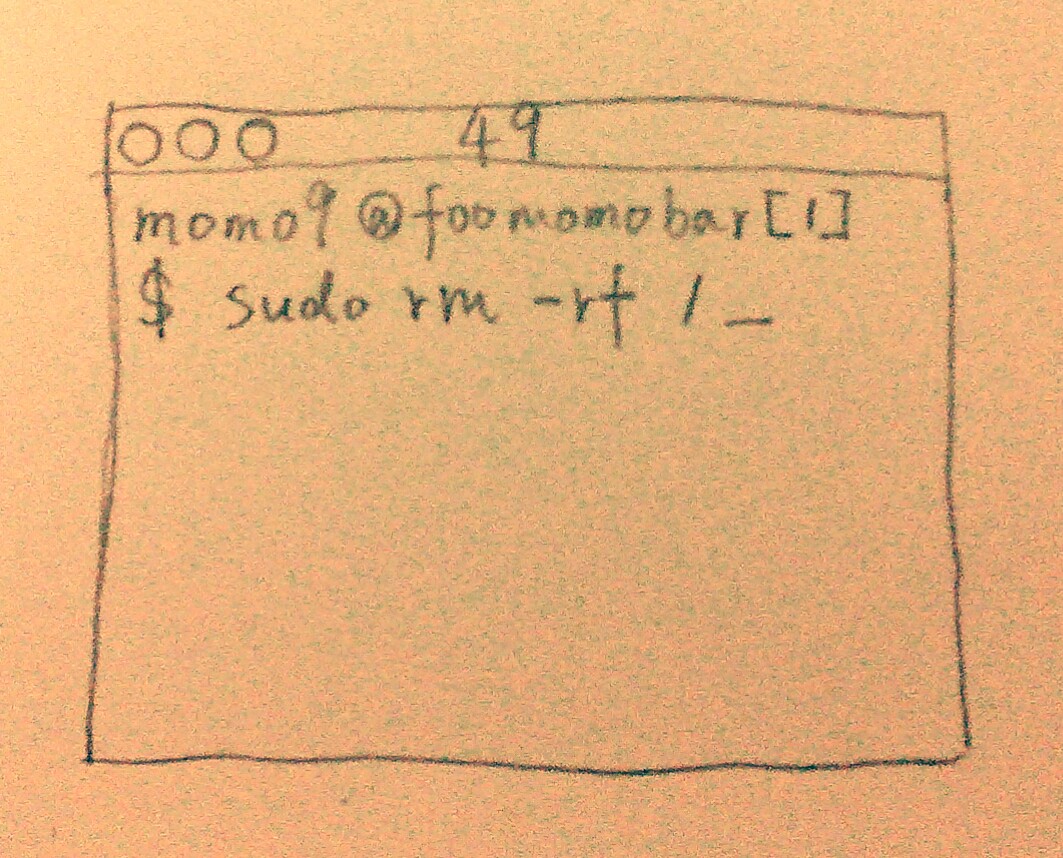 49
momo9@foomomobar[1]
$ sudo rm -rf /_